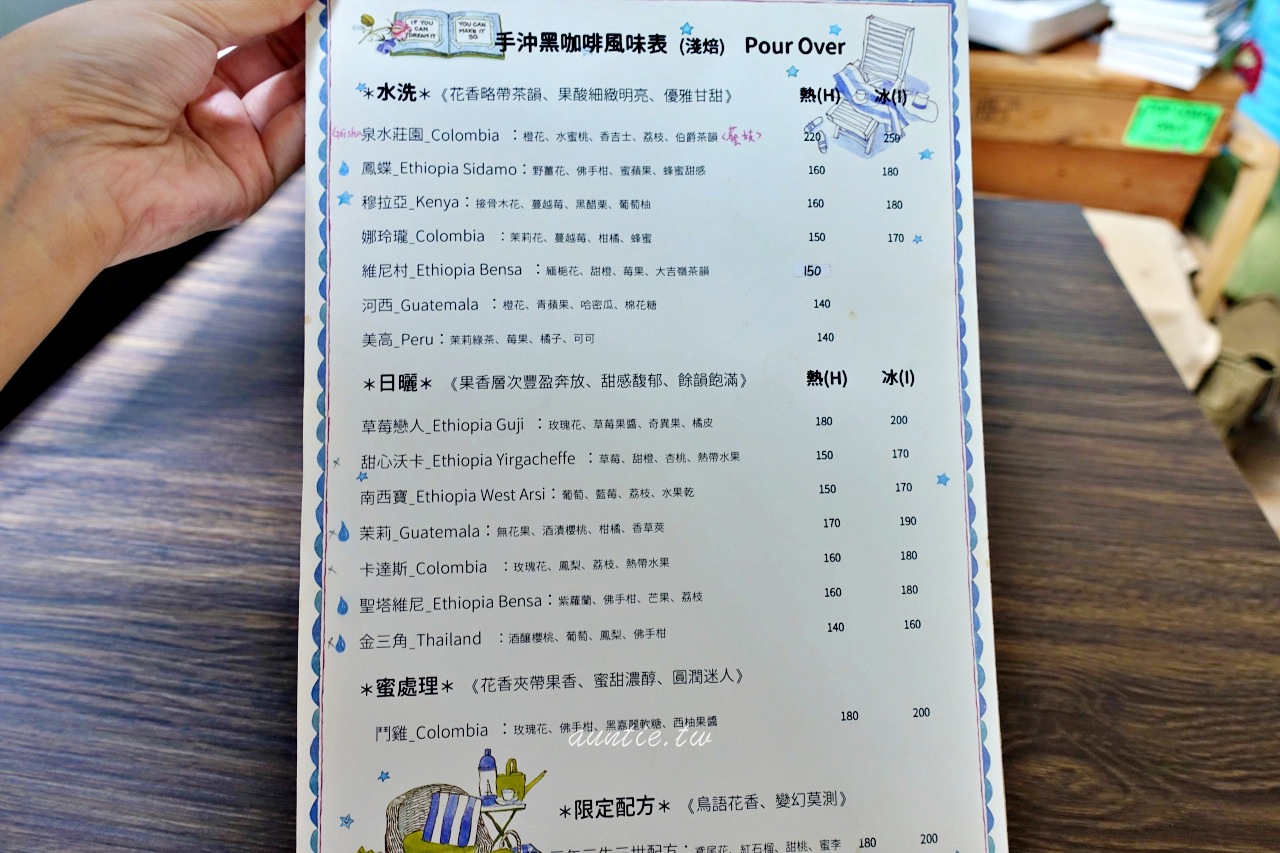 IF YOU CAN DREAM IT YOU CAN MAKE IT SO.
手沖黑咖啡風味表 (淺焙) Pour Over
*水洗* 《花香略帶茶韻、果酸細緻明亮、優雅甘甜》 熱(H) 冰(I)
Geisha 泉水莊園_Colombia :橙花、水蜜桃、香吉士、荔枝、伯爵茶韻 (藝妓) 220 250
鳳蝶_Ethiopia Sidamo:野薑花、佛手柑、蜜蘋果、蜂蜜甜感 160 180
穆拉亞_Kenya:接骨木花、蔓越莓、黑醋栗、葡萄柚 160 180
娜玲瓏_Colombia :茉莉花、蔓越莓、柑橘、蜂蜜 150 170
維尼村_Ethiopia Bensa :緬梔花、甜橙、莓果、大吉嶺茶韻 150
河西_Guatemala :橙花、青蘋果、哈密瓜、棉花糖 140
美高_Peru:茉莉綠茶、莓果、橘子、可可 140
*日曬* 《果香層次豐盈奔放、甜感馥郁、餘韻飽滿》 熱(H) 冰(I)
草莓戀人_Ethiopia Guji :玫瑰花、草莓果醬、奇異果、橘皮 180 200
甜心沃卡_Ethiopia Yirgacheffe :草莓、甜橙、杏桃、熱帶水果 150 170
南西寶_Ethiopia West Arsi:葡萄、藍莓、荔枝、水果乾 150 170
茉莉_Guatemala:無花果、酒漬櫻桃、柑橘、香草莢 170 190
卡達斯_Colombia :玫瑰花、鳳梨、荔枝、熱帶水果 160 180
聖塔維尼_Ethiopia Bensa:紫蘿蘭、佛手柑、芒果、荔枝 160 180
金三角_Thailand :酒釀櫻桃、葡萄、鳳梨、佛手柑 140 160
*蜜處理* 《花香夾帶果香、蜜甜濃醇、圓潤迷人》
鬥雞_Colombia :玫瑰花、佛手柑、黑嘉隆軟糖、西柚果醬 180 200
auntie.tw
*限定配方* 《鳥語花香、變幻莫測》
三生三世配方:鳶尾花、紅石榴、甜桃、蜜李 180 200